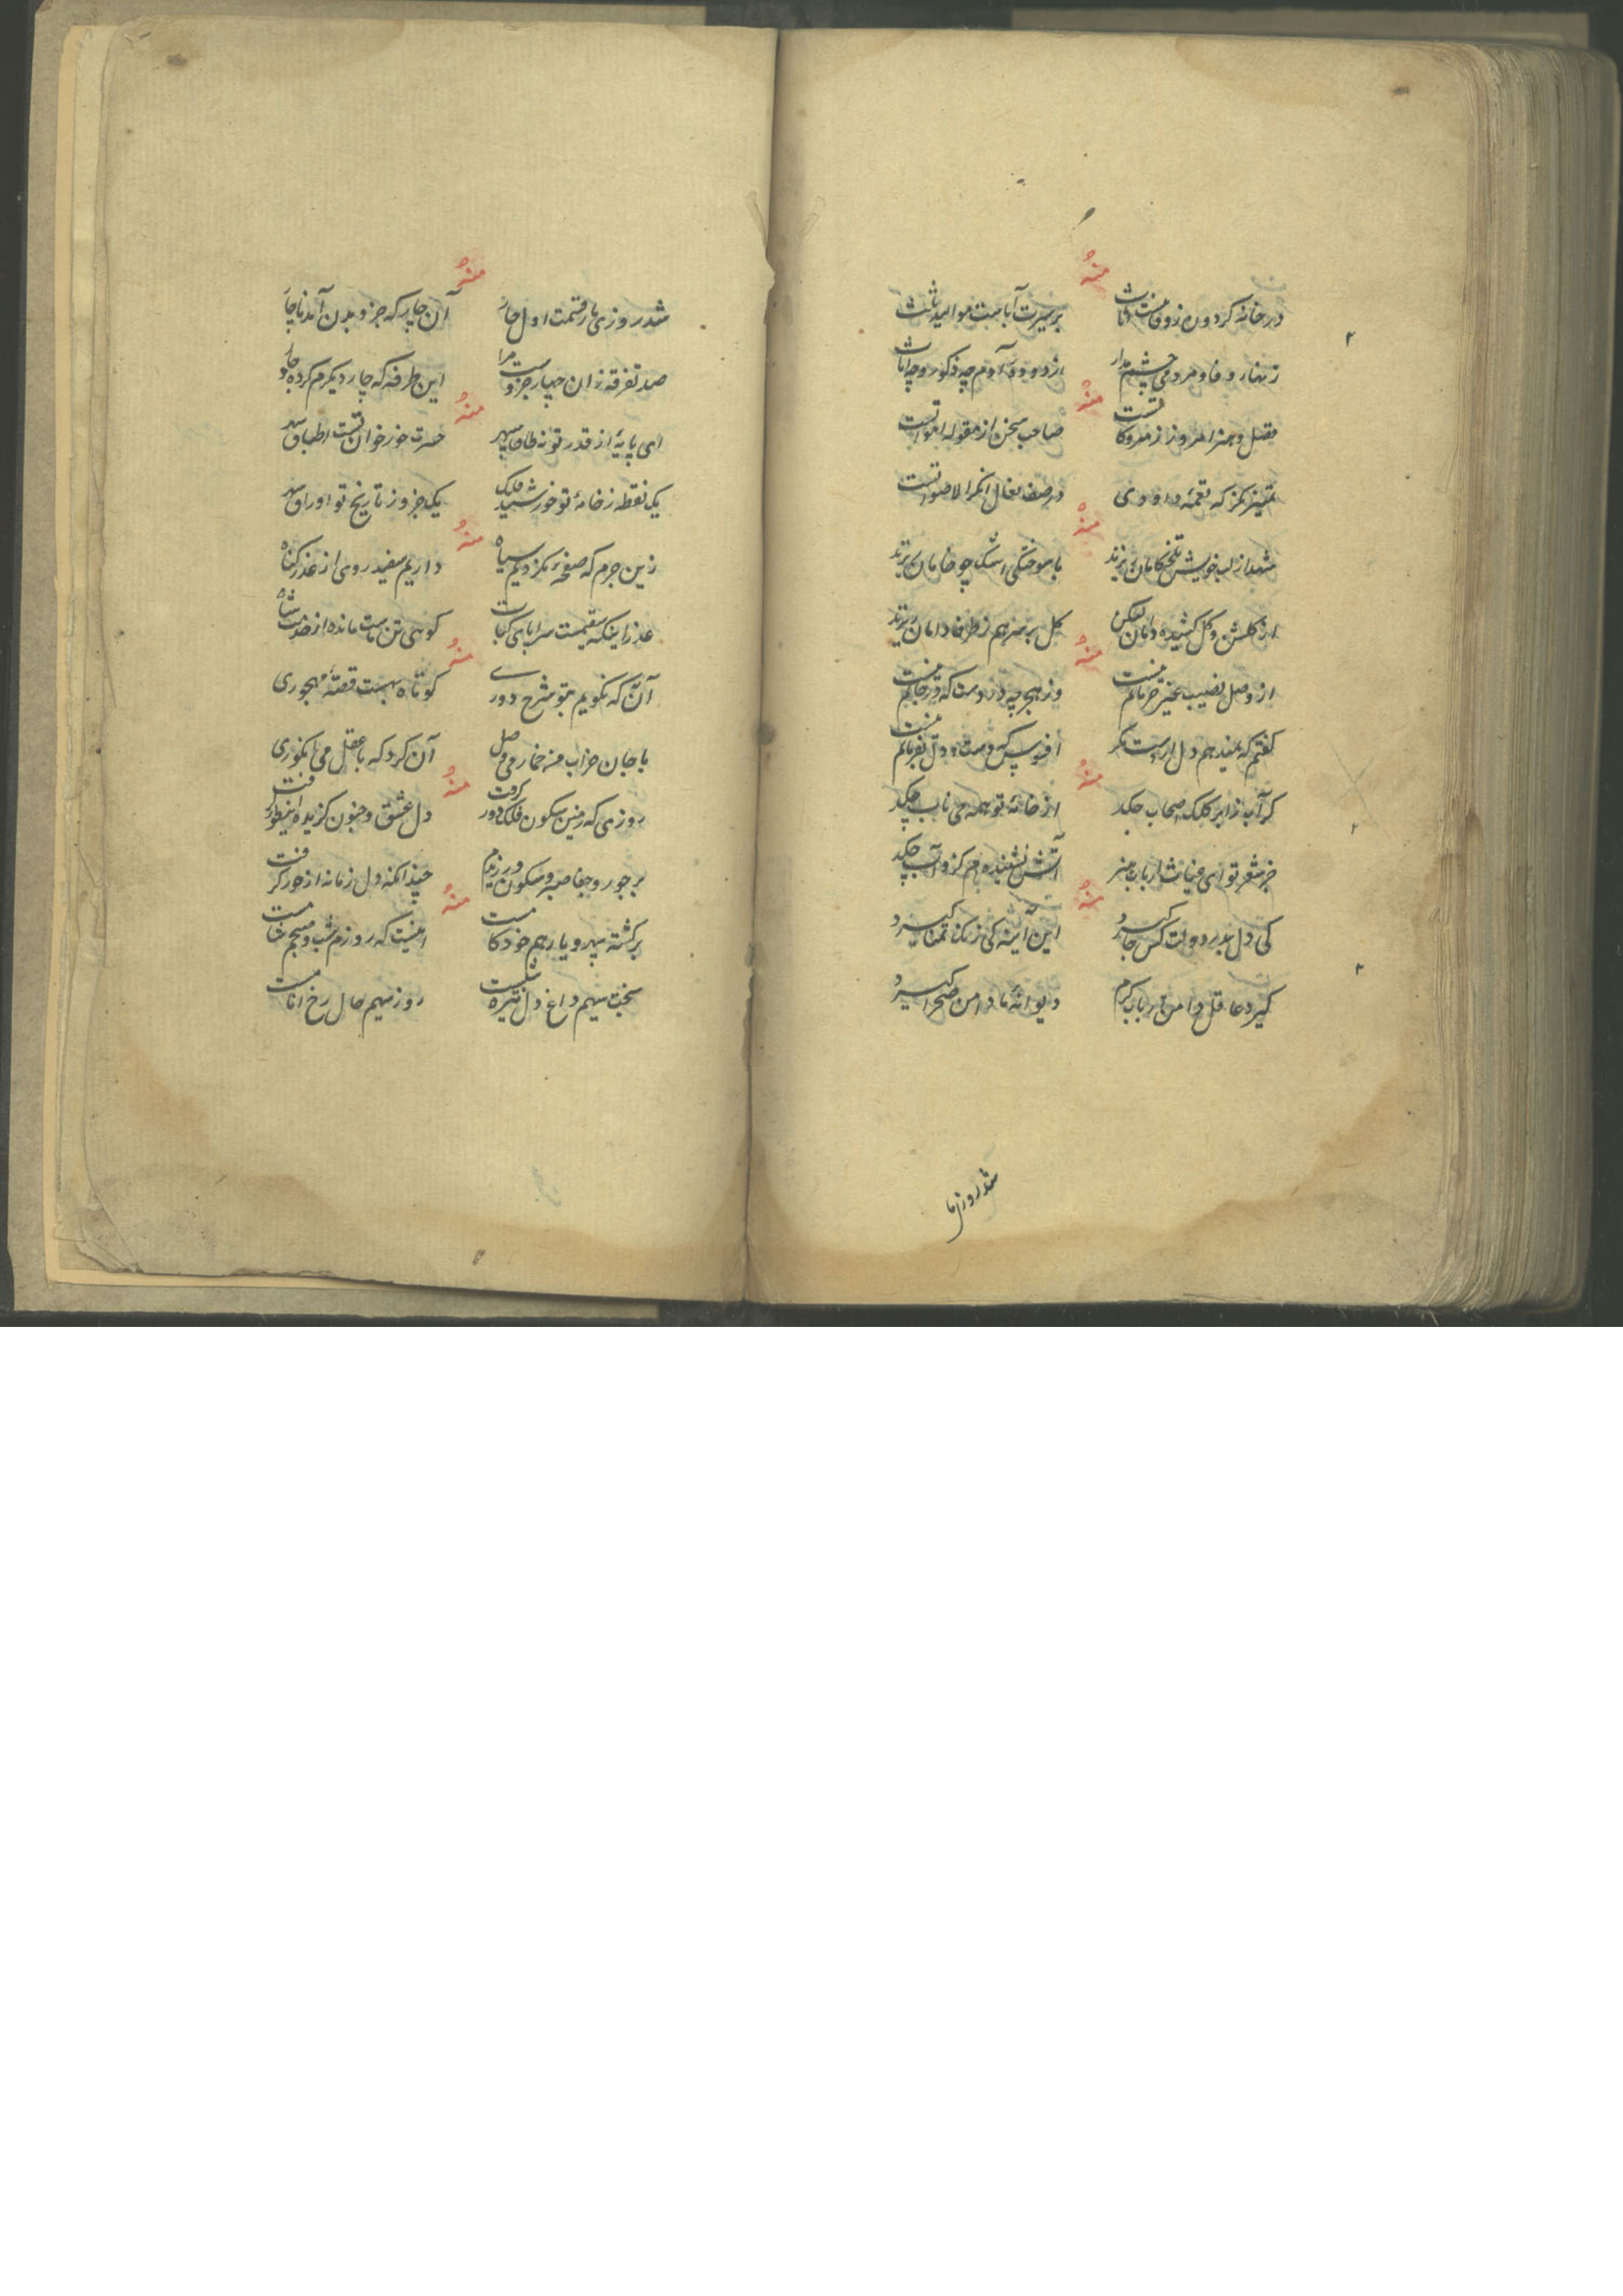 منه
در خانه کردون ز وفا نیست اثاث بر سیرت آباست موالید ثلاث
زنهار وفا و مردمی چشم مدار از دوده آدم چه ذکور و چه اناث
منه
فضل و هنر امروز ز متروکاتست صاحب سخن از مقوله امواتست
تمیز نکر که نغمه داودی در صف نعال انکر الاصواتست
منه
شهد از لب خویش تلخکامان ریزند با سوختگی اشک چو خامان ریزند
از کلشن و کل کشیده دامان لیکن کل بر سر هم ز طرف دامان ریزند
منه
از وصل نصیب غیر حرمانم نیست وز هجر چه دردست که در جانم نیست
کفتم که نیندهم دل از دست مکر افسوس که دست و دل بفرمانم نیست
منه
کر آب ز ابر کلک اصحاب چکد از خامه تو همه می ناب چکد
جز شعر تو ای غیاث ارباب هنر آتش نشنیده‌ام کزو آب چکد
منه
کی دل بدر دولت کس جا کیرد این آینه کی زنک تمنا کیرد
کیرد عاقل دامن ارباب کرم دیوانه ما دامن صحرا کیرد
شد روزی ما
منه
شد روزی ما ز قسمت اول چار آن چار که جزو بدن آمد ناچار
صد تفرقه زان چهار جزوست مرا این طرفه که چار دیکرم کرده دچار
منه
ای پایه از قدر تو نه طاق سپهر حسرت خور خوان تست اطباق سپهر
یک نقطه ز خامه تو خورشید فلک یک جزو ز تاریخ تو اوراق سپهر
منه
زین جرم که صفحه نکردیم سیاه داریم سفید روی از عذر کناه
عذر اینکه سقیمست سراپای کتاب کوهی تن ماست مانده از خدمت شاه
منه
آن به که نکویم بتو شرح دوری کوتاه بهست قصه مهجوری
با جان خراب من خمار می وصل آن کرد که با عقل می انکوری
منه
روزی که زمین سکون فلک دور کرفت دل عشق و جنون کزیده این طور کرفت
بر جور و جفا صبر و سکون ورزیدم چندانکه دل زمانه از جور کرفت
منه
برکشته سپهر و یار هم خودکامست اینست که روزم شب و صبحم شامست
بخت سیهم داغ دل تیره شبست روز سیهم خال رخ ایامست